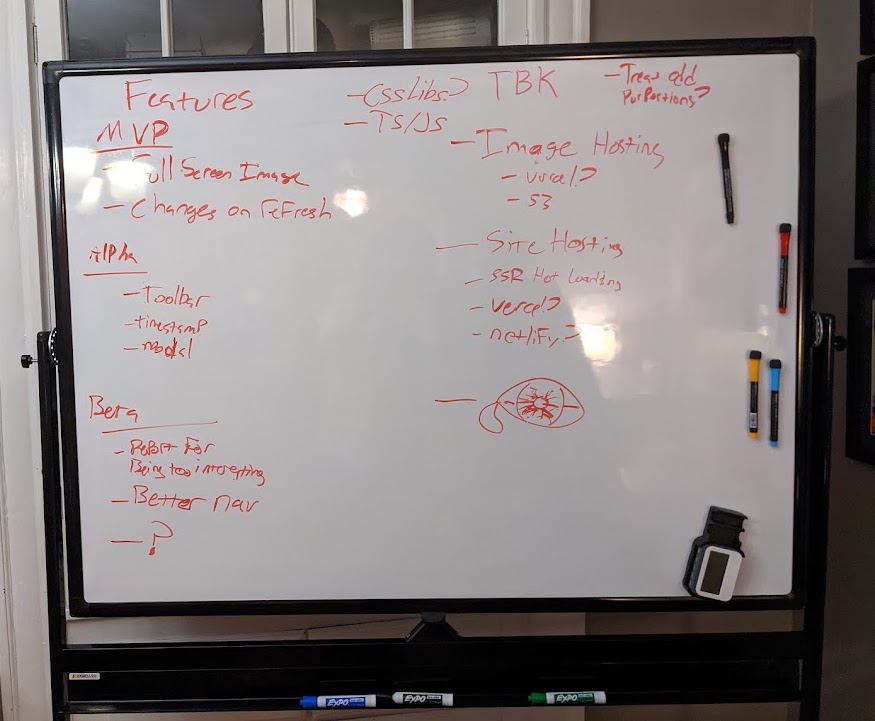 Features
MVP
- Full Screen Image
- Changes on reFresh
Alpha
- Toolbar
- timestamp
- modal
Beta
- Report For
Being too interesting
- Better nav
- ?
- Css Libs?
- TS/JS
TBK
- Treat odd
PurPortions?
- Image Hosting
- vercel?
- S3
- Site Hosting
- SSR Hot Loading
- vercel?
- netlify?
EXPO
EXPO
EXPO